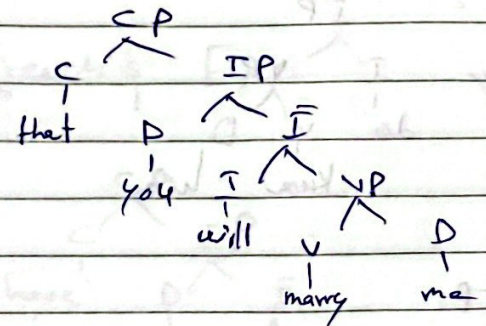 CP
C IP
that D I̿
you I VP
will V D
marry me